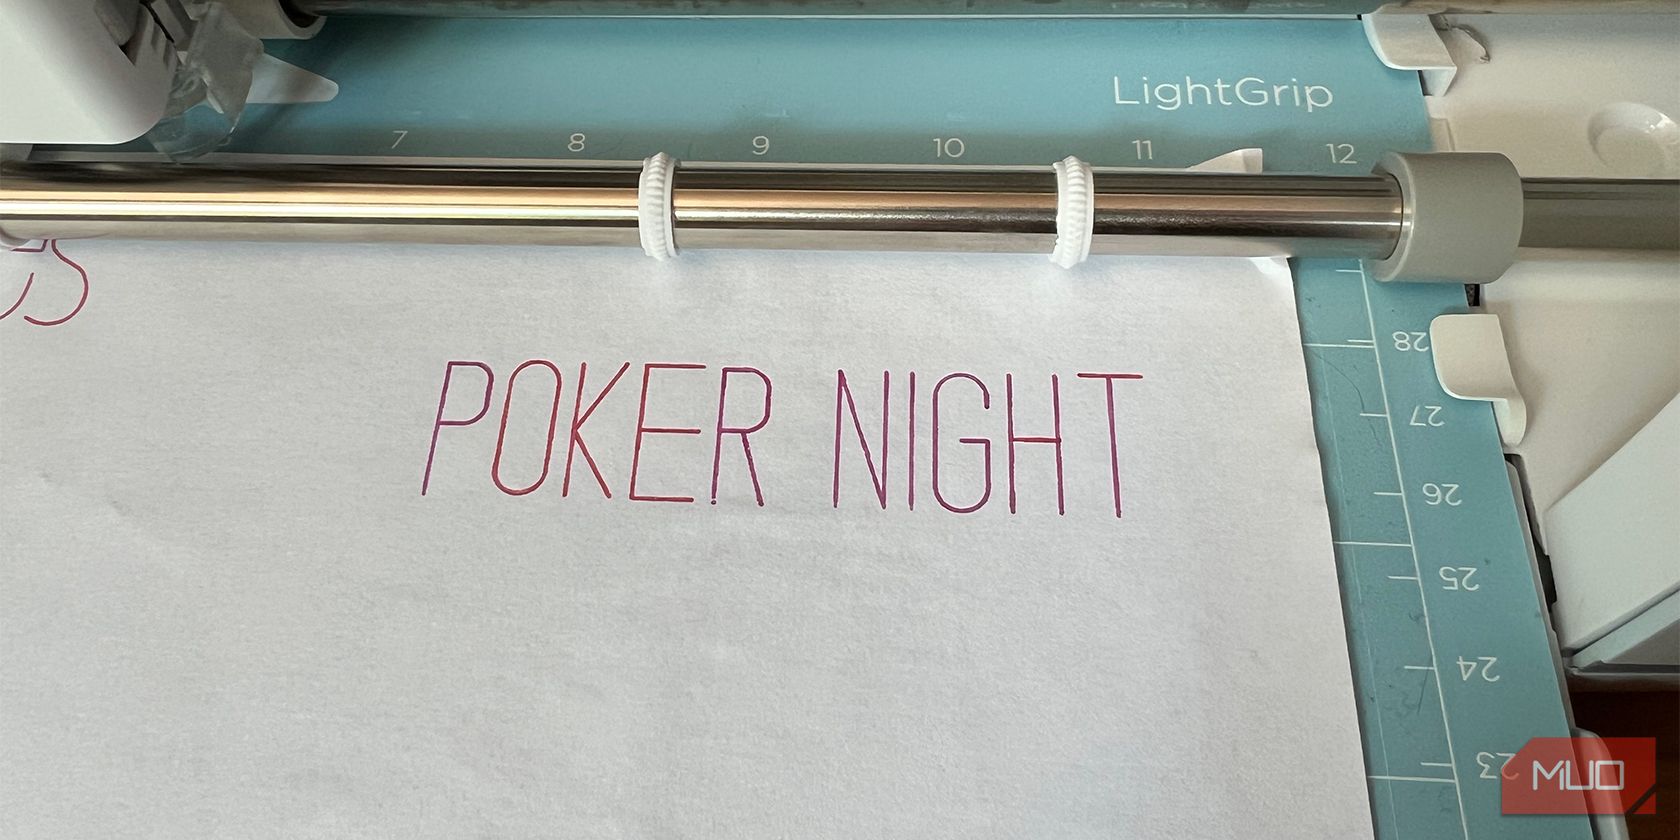 LightGrip
7 8 9 10 11 12
POKER NIGHT
28
27
26
25
24
23
MUO